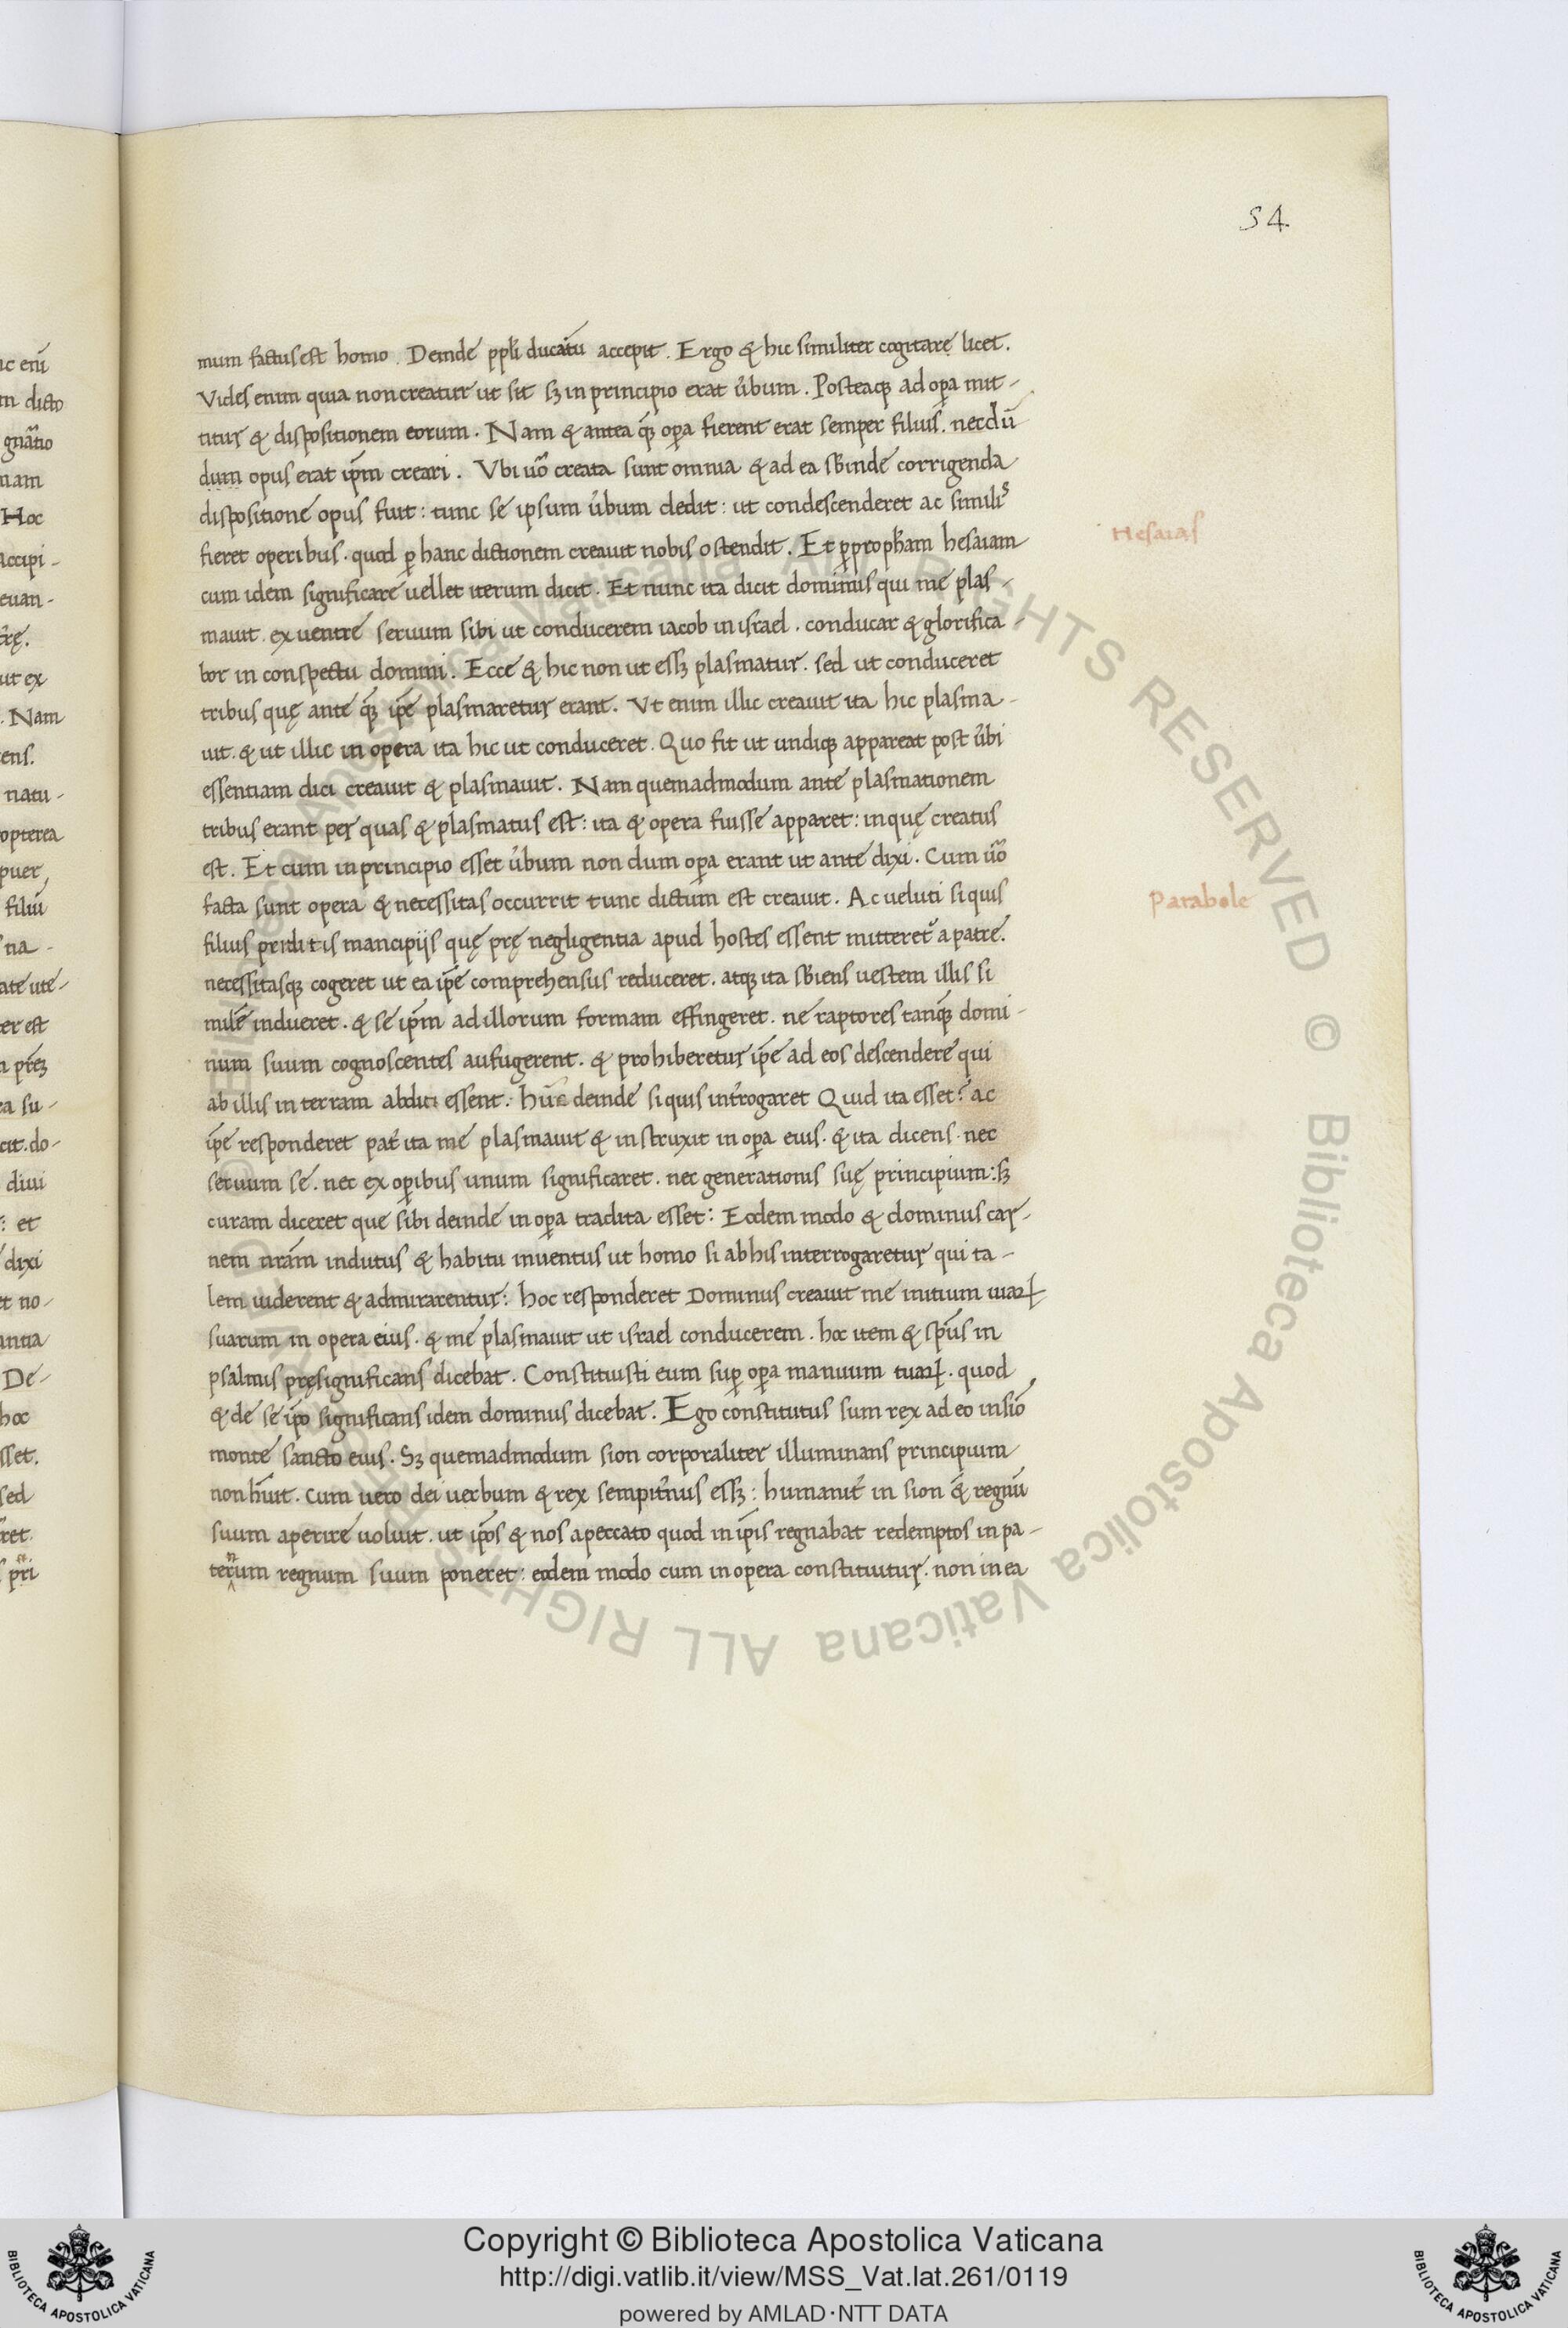 54.
mum factus est homo. Deinde ppli ducatū accepit. Ergo & hic similiter cogitare licet.
Vides enim quia non creatur ut sit sꝫ in principio erat ůbum. Posteaqꝫ ad oꝑa mit-
titur & dispositionem eorum. Nam & antea q̄ꝫ oꝑa fierent erat semper filius. necdū
dum opus erat ip̄m creari. Vbi uo᷃ creata sunt omnia & ad ea sƀinde corrigenda
dispositione opus fuit: tunc se ipsum ůbum dedit: ut condescenderet ac similis
fieret operibus. quod ꝑ hanc dictionem creauit nobis ostendit. Et ꝑ propħam hesaiam
Hesaias
cum idem significare uellet iterum dicit. Et nunc ita dicit dominus qui me plas-
mauit. ex uentre seruum sibi ut conducerem iacob in israel. conducar & glorifica-
bor in conspectu domini. Ecce & hic non ut essꝫ plasmatur. sed ut conduceret
tribus quę ante q̄ꝫ ip̄e plasmaretur erant. Vt enim illic creauit ita hic plasma-
uit. & ut illic in opera ita hic ut conduceret. Quo fit ut undiqꝫ appareat post ůbi
essentiam dici creauit & plasmauit. Nam quemadmodum ante plasmationem
tribus erant per quas & plasmatus est: ita & opera fuisse apparet: in quę creatus
est. Et cum in principio esset ůbum non dum oꝑa erant ut ante dixi. Cum uo᷃
facta sunt opera & necessitas occurrit tunc dictum est creauit. Ac ueluti si quis
Parabole
filius perditis mancipijs quę prę negligentia apud hostes essent mitteret᷑ a patre.
necessitasqꝫ cogeret ut ea ip̄e comprehensus reduceret. atqꝫ ita sƀiens uestem illis si
milē indueret. & se ip̄m ad illorum formam effingeret. ne raptores tanq̄ꝫ domi-
num suum cognoscentes aufugerent. & prohiberetur ip̄e ad eos descendere qui
ab illis in terram abditi essent. hūc deinde si quis int̉rogaret Quid ita esset? ac
ip̄e responderet pat̉ ita me plasmauit & instruxit in oꝑa eius. & ita dicens. nec
seruum se. nec ex oꝑibus unum significaret. nec generationis suę principium: sꝫ
curam diceret que sibi deinde in oꝑa tradita esset: Eodem modo & dominus car-
nem nr̄am indutus & habitu inuentus ut homo si ab his interrogaretur qui ta-
lem uiderent & admirarentur: hoc responderet Dominus creauit me initium uiaꝝ
suarum in opera eius. & me plasmauit ut israel conducerem. hoc item & sp̄us in
psalmis pręsignificans dicebat. Constituisti eum suꝑ oꝑa manuum tuaꝝ. quod
& de se ip̄o significans idem dominus dicebat. Ego constitutus sum rex ad eo in sio᷃
monte sancto eius. Sꝫ quemadmodum sion corporaliter illuminans principium
non ħuit. cum uero dei uerbum & rex sempit̉nus essꝫ: humanit̉ in sion & regnū
suum aperire uoluit. ut ip̄os & nos a peccato quod in ip̄is regnabat redemptos in pa-
ternum regnum suum poneret: eodem modo cum in opera constituitur. non in ea
Copyright © Biblioteca Apostolica Vaticana
http://digi.vatlib.it/view/MSS_Vat.lat.261/0119
powered by AMLAD·NTT DATA